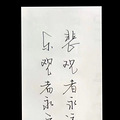 悲观者永
乐观者永